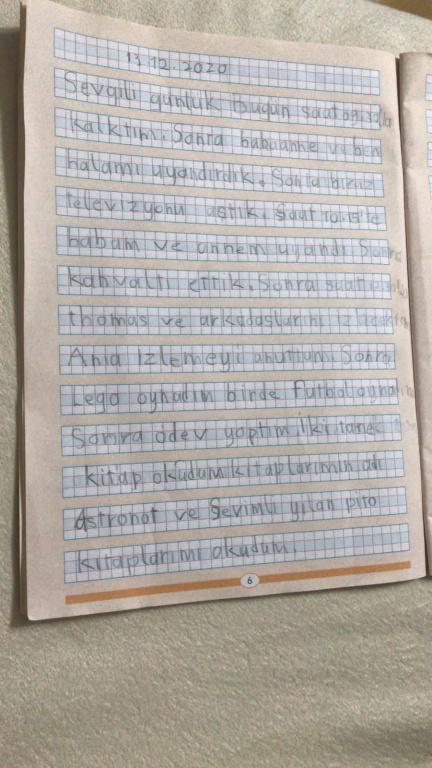 13.12.2020
Sevgili günlük bugün saat
kalktım. Sonra babaanne ve ben
halamı uyandırdık. Sonra biraz
televizyonu açtık. Saat 10:15 te
babam ve annem uyandı Sonra
kahvaltı ettik. Sonra saat
thomas ve arkadaşlarını izledim
Ama izlemeyi unuttum Sonra
Lego oynadım birde futbol oynadım
Sonra ödev yaptım iki tane
kitap okudum kitaplarımın adı
Astronot ve Sevimli yılan pito
kitaplarımı okudum.
6